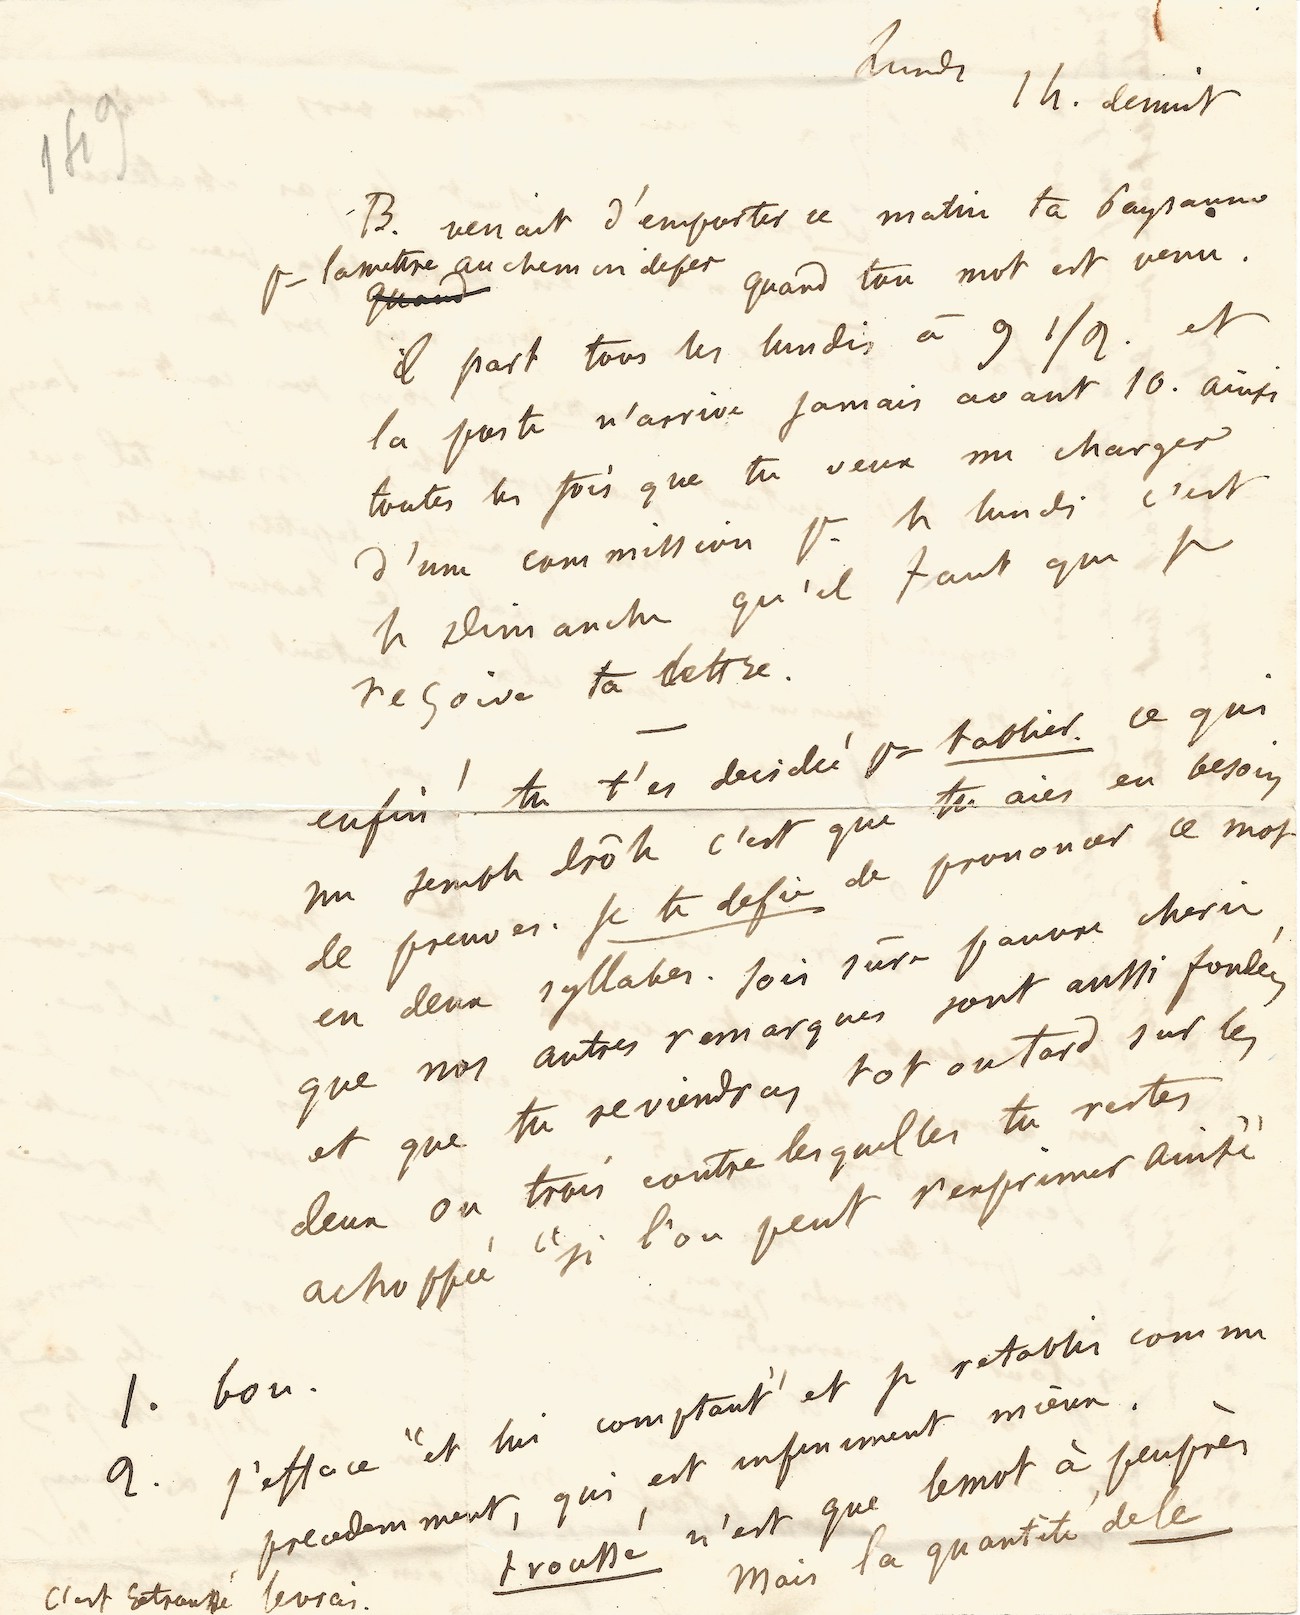 149
Lundi
1 h. denuit
B. venait d'emporter ce matin ta Paysanne
pr lamettre auchemin defer quand ton mot est venu.
quand
il part tous les lundis à 9 1/2. et
la poste n'arrive jamais avant 10. ainsi
toutes les fois que tu veux me charger
d'une commission pr le lundi c'est
le Dimanche qu'il faut que je
reçoive ta lettre.
—
enfin! tu t'es decidée pr tablier. ce qui
me semble drôle c'est que tu aies eu besoin
de preuves. Je te defie de prononcer ce mot
en deux syllabes. sois sûre pauvre cherie
que nos autres remarques sont aussi fondées
et que tu reviendras tot outard sur les
deux ou trois contre lesquelles tu restes
achoppée "si l'on peut s'exprimer ainsi"
1. bon.
2. j'efface "et lui comptant" et je retablis comme
precedemment, qui est infiniment mieux.
troussé n'est que lemot à peuprès
C'est retroussé levrai. Mais la quantité dele